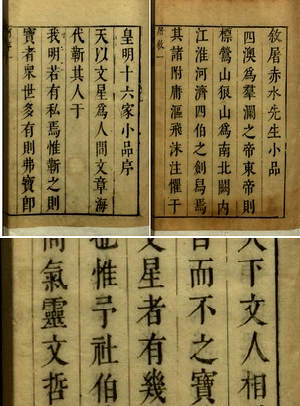 皇明十六家小品序
天以文星為人間文章海
代靳其人于
我明若有私焉惟靳之則
寶者衆世多有則弗寶即
敘屠赤水先生小品
四澳為羣瀾之帝東帝則
標鶯山狼山為南北闕內
江淮河濟四伯之劍舄焉
其諸附庸漚飛沫注懼干
下文人相
而不之寶
文星者有幾
也惟予社伯
間氣靈文哲